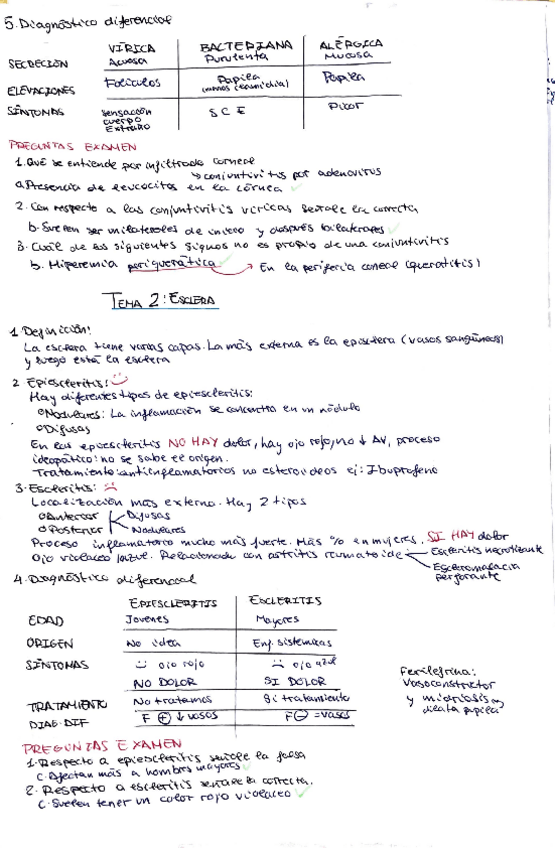 5. Diagnóstico diferencial
VÍRICA BACTERIANA ALÉRGICA
SECRECIÓN Acuosa Purulenta Mucosa
ELEVACIONES Folículos Papila Papila
SÍNTOMAS sensación cuerpo extraño S C E Picor
PREGUNTAS EXAMEN
1. Qué se entiende por infiltrado corneal
→ conjuntivitis por adenovirus
a. Presencia de leucocitos en la córnea ✓
2. Con respecto a las conjuntivitis víricas señale la correcta
b. Suelen ser unilaterales de inicio y después bilaterales ✓
3. Cuál de los siguientes signos no es propio de una conjuntivitis
b. Hiperemia periquerática ✓ → En la periferia corneal (queratitis)
TEMA 2: ESCLERA
1 Definición:
La esclera tiene varias capas. La más externa es la episclera (vasos sanguíneos)
y luego está la esclera
2 Epiescleritis:
Hay diferentes tipos de epiescleritis:
Nodulares: La inflamación se concentra en un nódulo
Difusas
En las epiescleritis NO HAY dolor, hay ojo rojo, no ↓ AV, proceso
ideopático: no se sabe el origen.
Tratamiento: antiinflamatorios no esteroideos ej: Ibuprofeno
3. Escleritis:
Localización más externa. Hay 2 tipos
Anterior Difusas
Posterior Nodulares
Proceso inflamatorio mucho más fuerte. Más % en mujeres. SI HAY dolor
Ojo violáceo/azul. Relacionada con artritis reumatoide Escleritis necrotizante
Escleromalacia
perforante
4. Diagnóstico diferencial
EPIESCLERITIS ESCLERITIS
EDAD Jovenes Mayores
ORIGEN No idea Enf. sistémicas
SÍNTOMAS ojo rojo ojo azul
NO DOLOR SI DOLOR
TRATAMIENTO No tratamos Si tratamiento
DIAG. DIF F ⊕ ↓ vasos F ⊖ = vasos
Fenilefrina:
Vasoconstrictor
y midriasis →
dilata pupila
PREGUNTAS EXAMEN
1. Respecto a epiescleritis señale la falsa
c. Afectan más a hombres mayores ✓
2. Respecto a escleritis señale la correcta.
c. Suelen tener un color rojo violáceo ✓